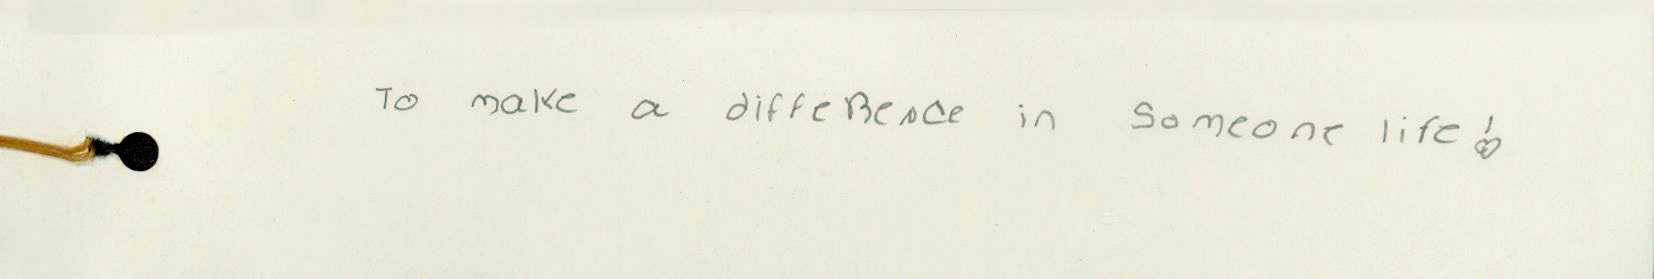 To make a diffeRence in Someone life!